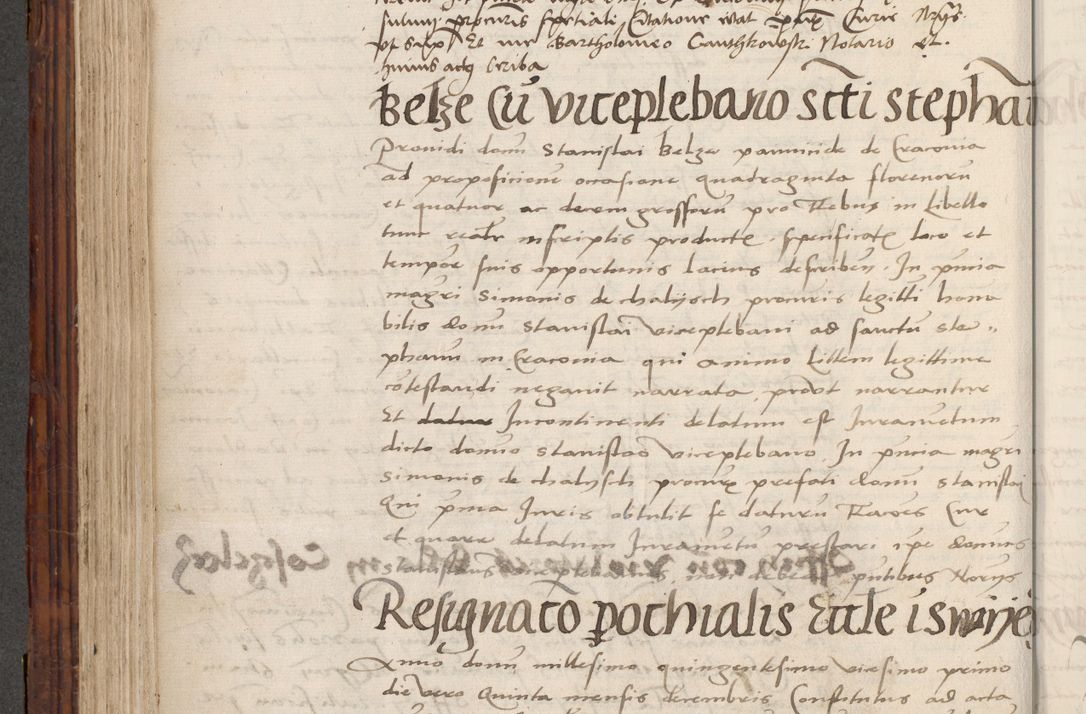 sulum procuris Spetiali Citatione
ut supra Et me Bartholomeo Notario et
huius actus scriba
Belze Cu viceplebano scti stephani
Providi domi Stanislai Belze pannicide de Cracovia
ad proposicione occasione quadraginta florenoru
et quatuor ac decem grossoru pro Rebus in Libello
tunc realr inscriptis producte specificate loco et
tempore suis opportunis lacius describen In pncia
magri Simonis de chalijsch procuris legitti hono
bilis domi Stanislai viceplebani ad sanctu ste-
phanu in Cracovia qui animo Littem legittime
cotestandi negavit narrata prout narrantur
Et datur Incontinenti delatum est Iuramentum
dicto domino Stanislao viceplebano In pncia magri
Simonis de chalijsch procuris prefati domi Stanislai
Qui pmia Iuris obtulit se daturu Raoes Cur
et quare delatum Iuramentu prestari ipe domus
Stanislaus viceplebanus non debeat pntibus
Resignato pochialis Eccle i
Anno domi millesimo quingentesimo vicesimo primo
die vero Quinta mensis decembris Constitutus ad acta